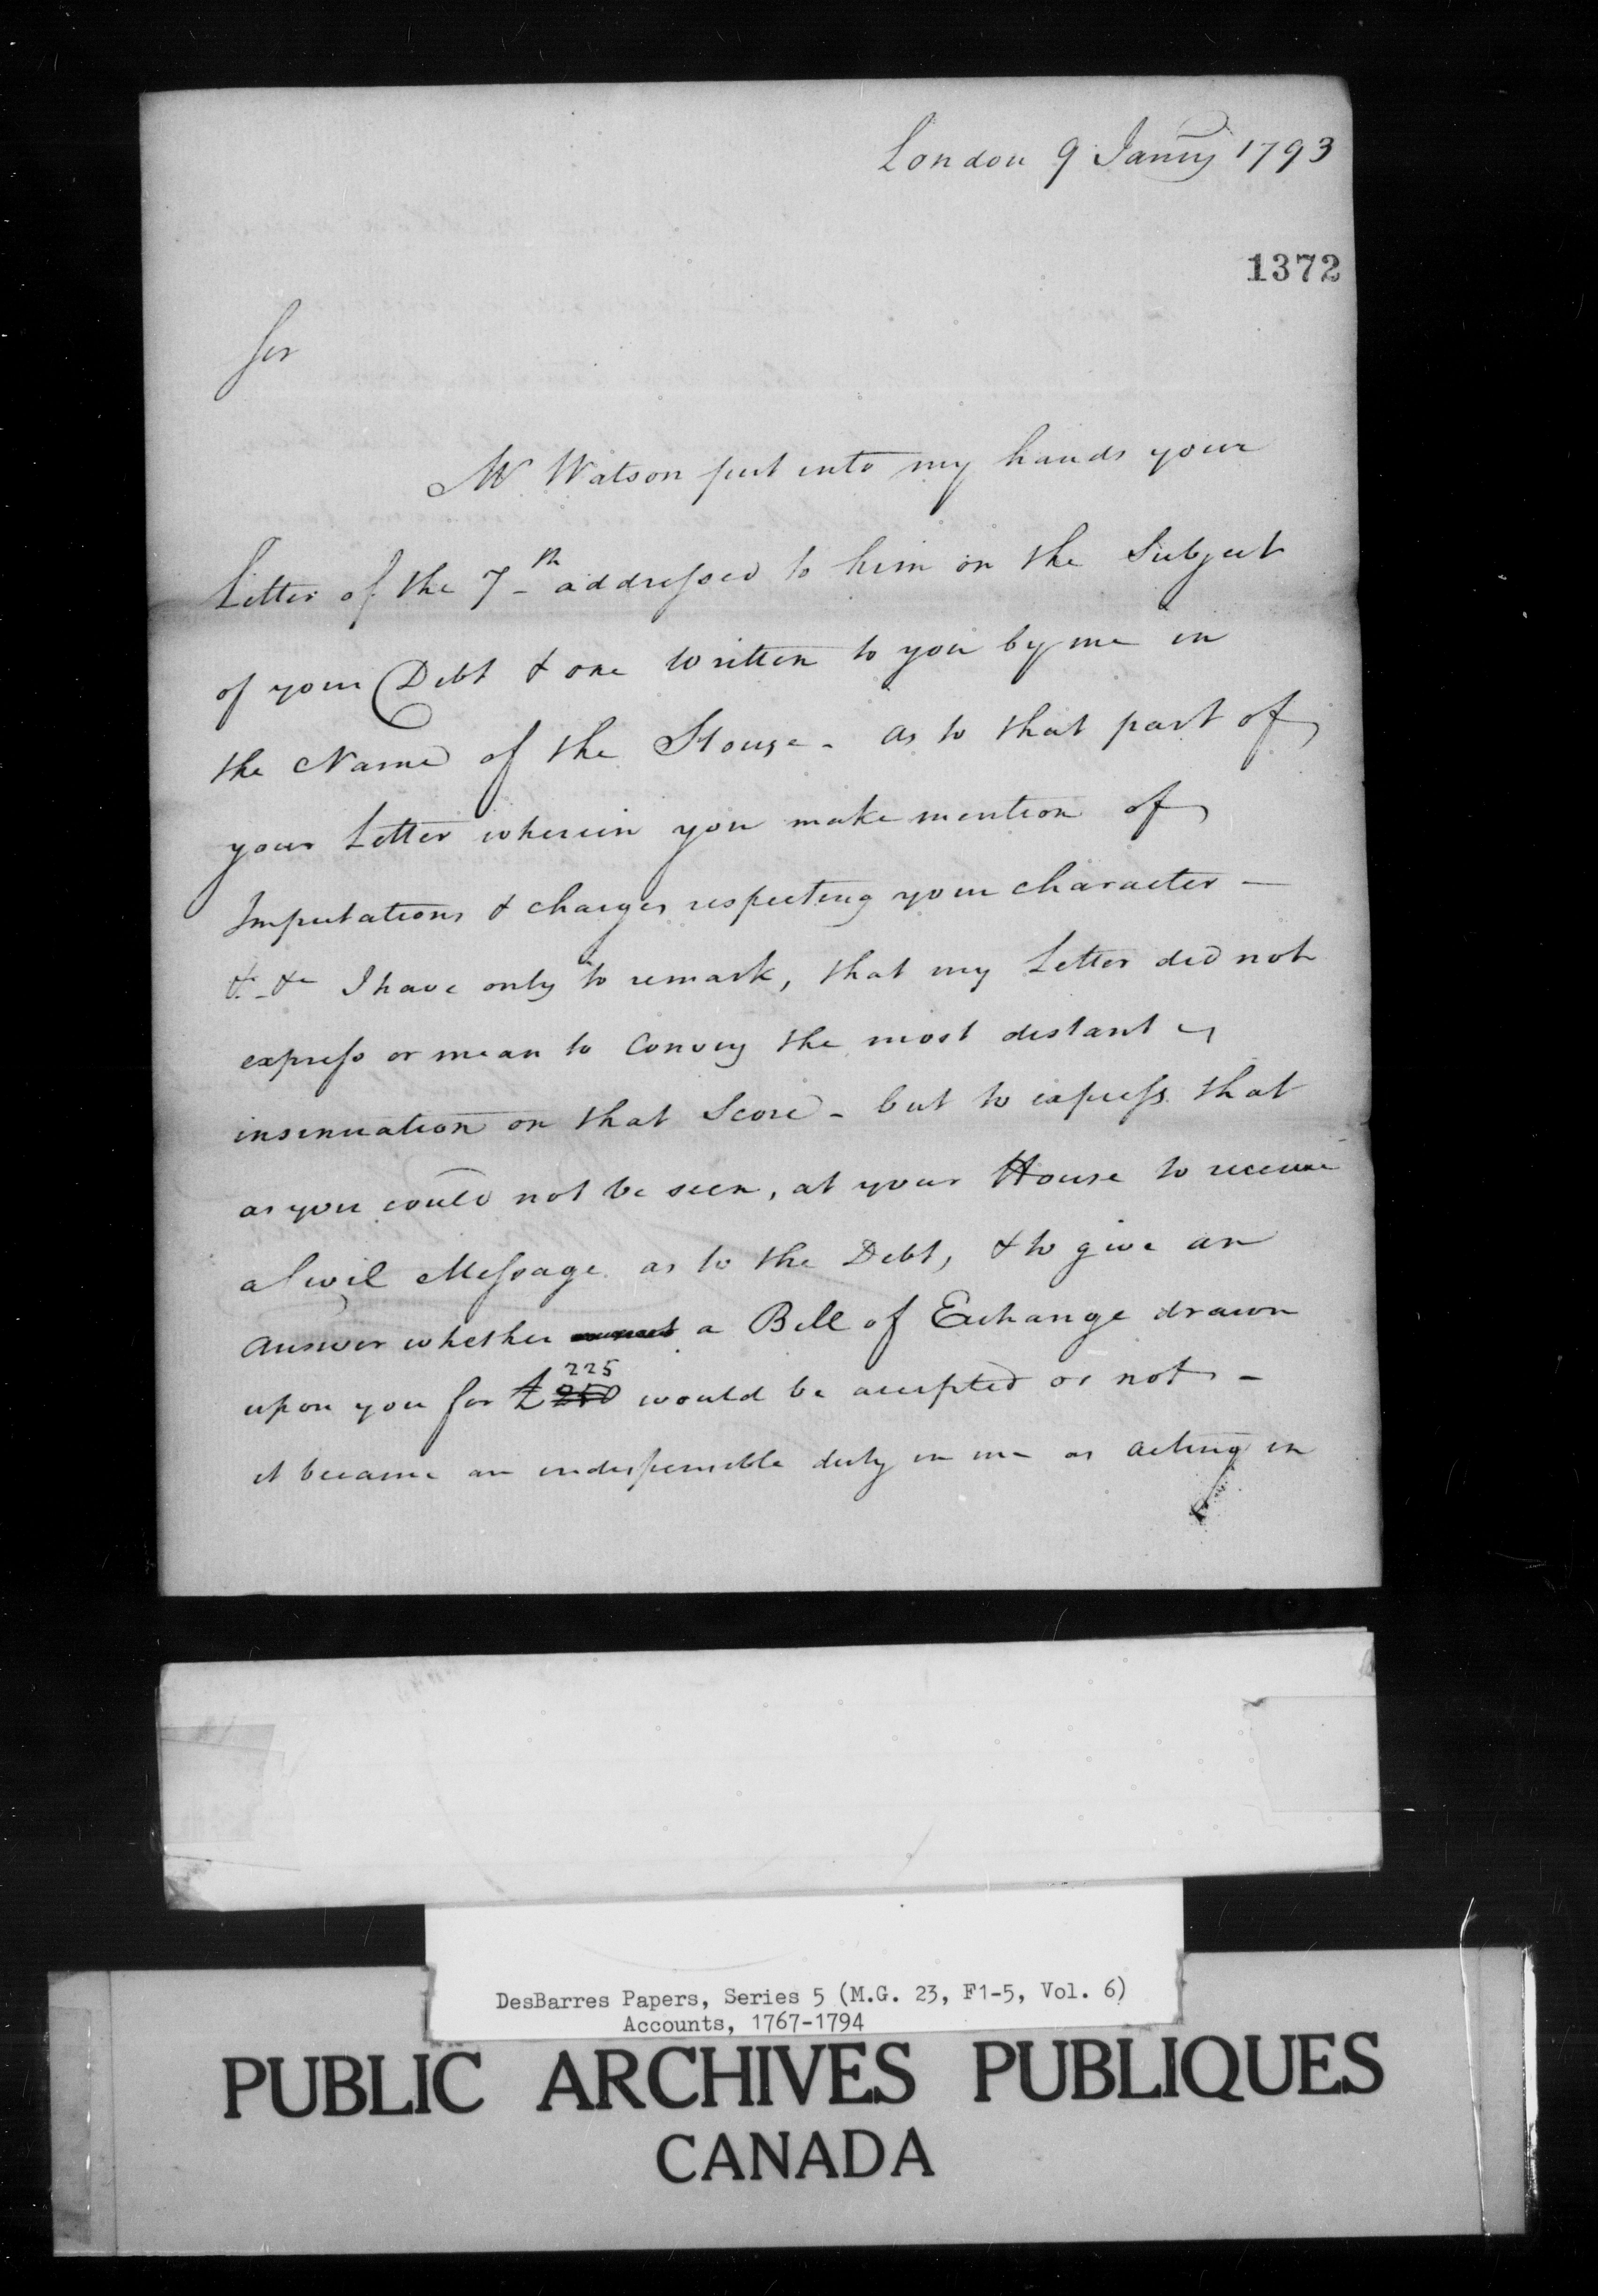 London 9 Janry 1793
1372
Sir
Mr Watson put into my hands your
Letter of the 7th addressed to him on the Subject
of your Debt & one written to you by me in
the Name of the House - as to that part of
your Letter wherein you make mention of
Imputations & charges respecting your character -
&c &c I have only to remark, that my Letter did not
express or mean to Convey the most distant
insinuation on that Score - but to express that
as you could not be seen, at your House to receive
a Civil Message as to the Debt, & to give an
answer whether a Bill of Exchange drawn
225
upon you for £ 250 would be accepted or not -
it became an indispensible duty in me as acting in
DesBarres Papers, Series 5 (M.G. 23, F1-5, Vol. 6)
Accounts, 1767-1794
PUBLIC ARCHIVES PUBLIQUES
CANADA